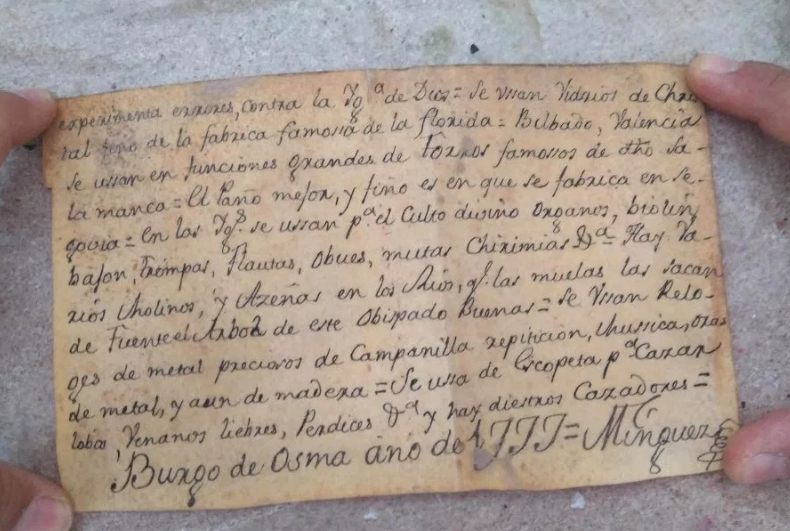 experimenta errores, contra la Yg.ª de Dios = Se Vssan Vidrios de Chris
tal fino de la fabrica famossa de la florida = Bilbado, Valencia
se ussan en funciones grandes de Torros famossos de dho Sa-
la manca = El Paño mejor, y fino es en que se fabrica en Se-
govia = en las Yg.s se ussan p.ª el Culto divino Organos, biolin,
bajon, Trompas, Flautas, Obues, mutas Chirimias &ª = Hay Va-
rios Molinos, y Azeñas en los Rios, q.e las muelas las sacan
de Fuente el Arbol de este Obispado Buenas = Se Vssan Relo-
ges de metal preciosos de Campanilla repiticion, Mussica, oras
de metal, y aun de madera = Se ussa de Escopeta p.ª Cazar
lobos, Venanos liebres, Perdices &ª y hay diestros Cazadores =
Burgo de Osma año de 1777 = Minguez